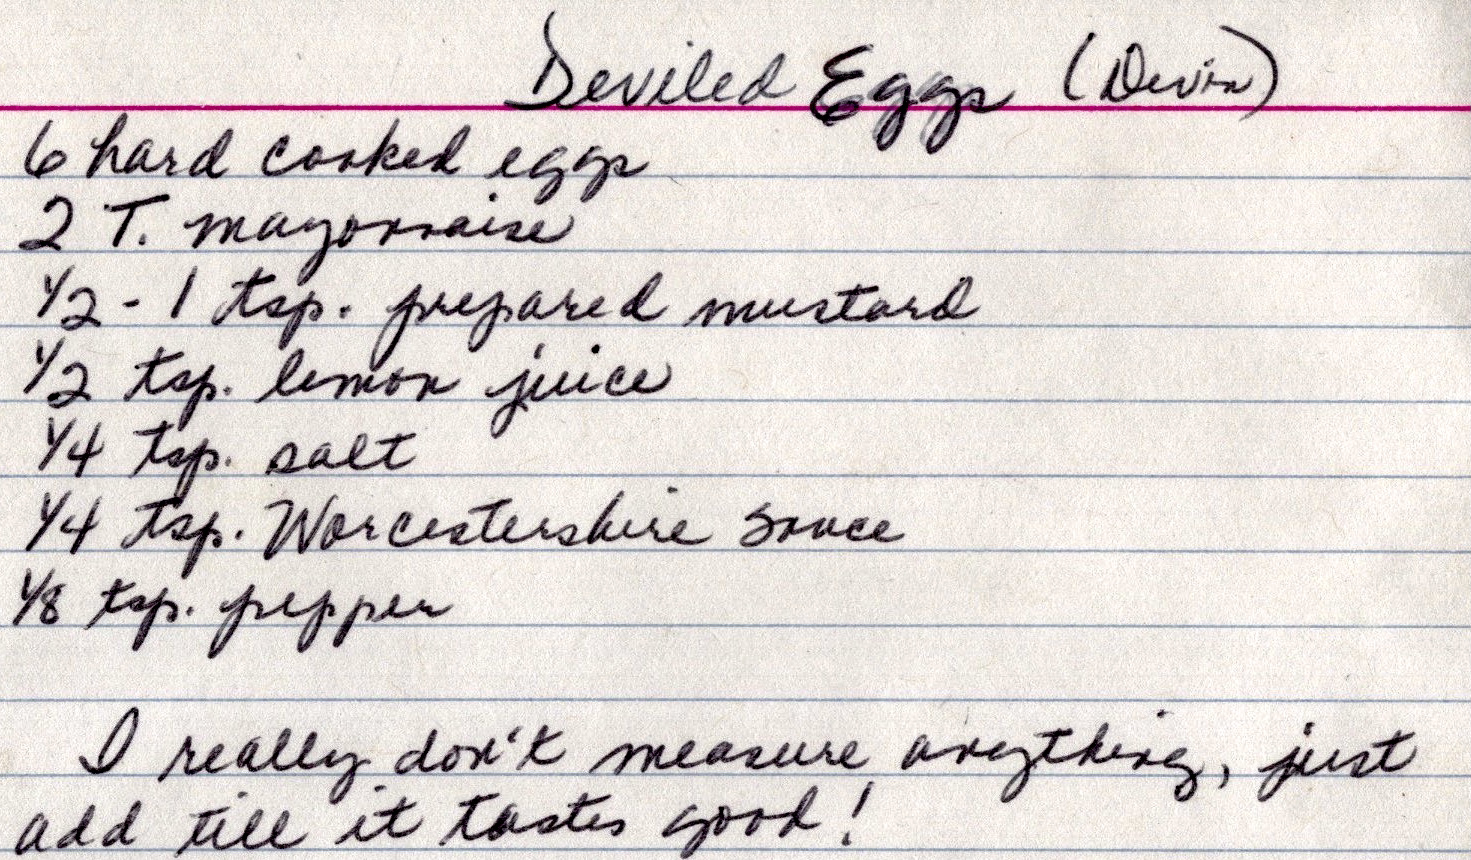 Deviled Eggs (Devin)
6 hard cooked eggs
2 T. mayonnaise
1/2 - 1 tsp. prepared mustard
1/2 tsp. lemon juice
1/4 tsp. salt
1/4 tsp. Worcestershire sauce
1/8 tsp. pepper
I really don't measure anything, just
add till it tastes good!